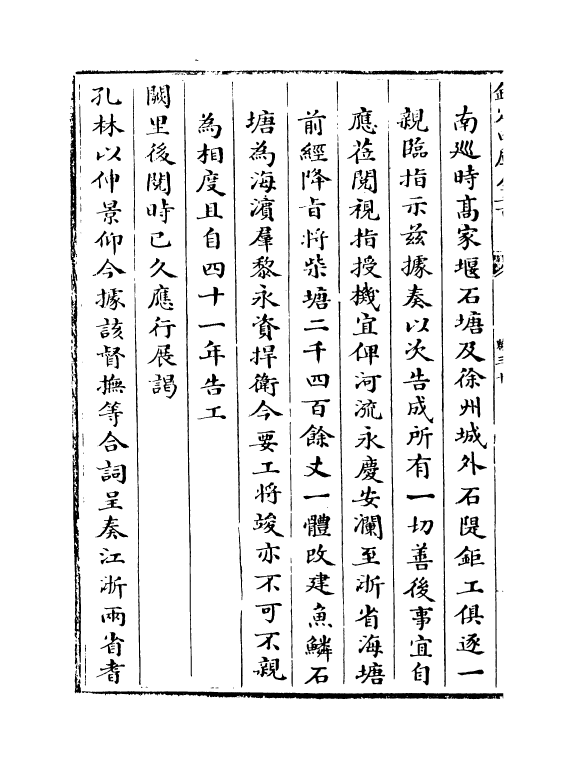 南廵時髙家堰石塘及徐州城外石隄鉅工俱逐一
親臨指示兹據奏以次告成所有一切善後事宜自
應莅閱視指授機宜俾河流永慶安瀾至浙省海塘
前經降旨將柴塘二千四百餘丈一體改建魚鱗石
塘為海濵羣黎永資捍衛今要工將竣亦不可不親
為相度且自四十一年告工
闕里後閱時已久應行展謁
孔林以伸景仰今據該督撫等合詞呈奏江浙兩省耆